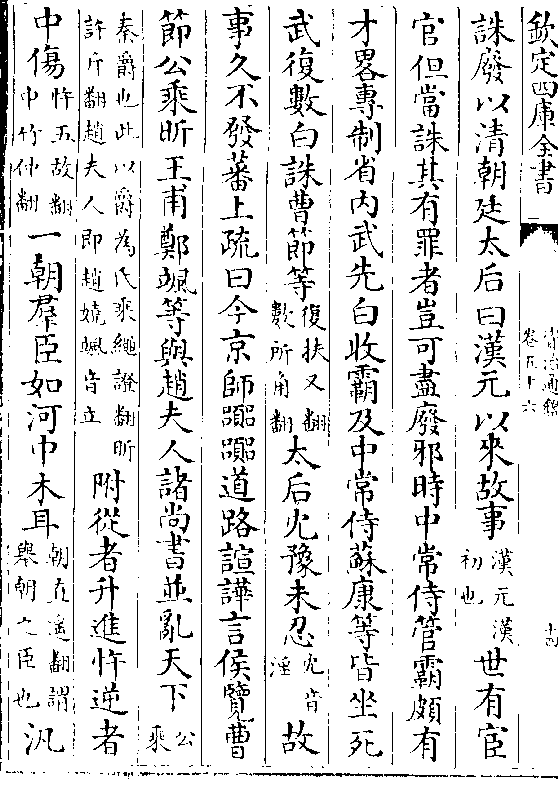 欽定四庫全書
資治通鑑
卷五十六
十四
誅廢以清朝廷太后曰漢元以來故事漢元漢初也世有宦
官但當誅其有罪者豈可盡廢邪時中常侍管霸頗有
才畧專制省内武先白收霸及中常侍蘇康等皆坐死
武復數白誅曹節等復扶又翻數所角翻太后冘豫未忍冘音淫故
事久不發蕃上疏曰今京師嚻嚻道路諠譁言侯覽曹
節公乘昕王甫鄭颯等與趙夫人諸尚書並亂天下公乘
秦爵也此以爵為氏乘繩證翻昕許斤翻趙夫人即趙嬈颯音立附從者升進忤逆者
中傷忤五故翻中竹仲翻一朝羣臣如河中木耳朝直遥翻謂舉朝之臣也汎